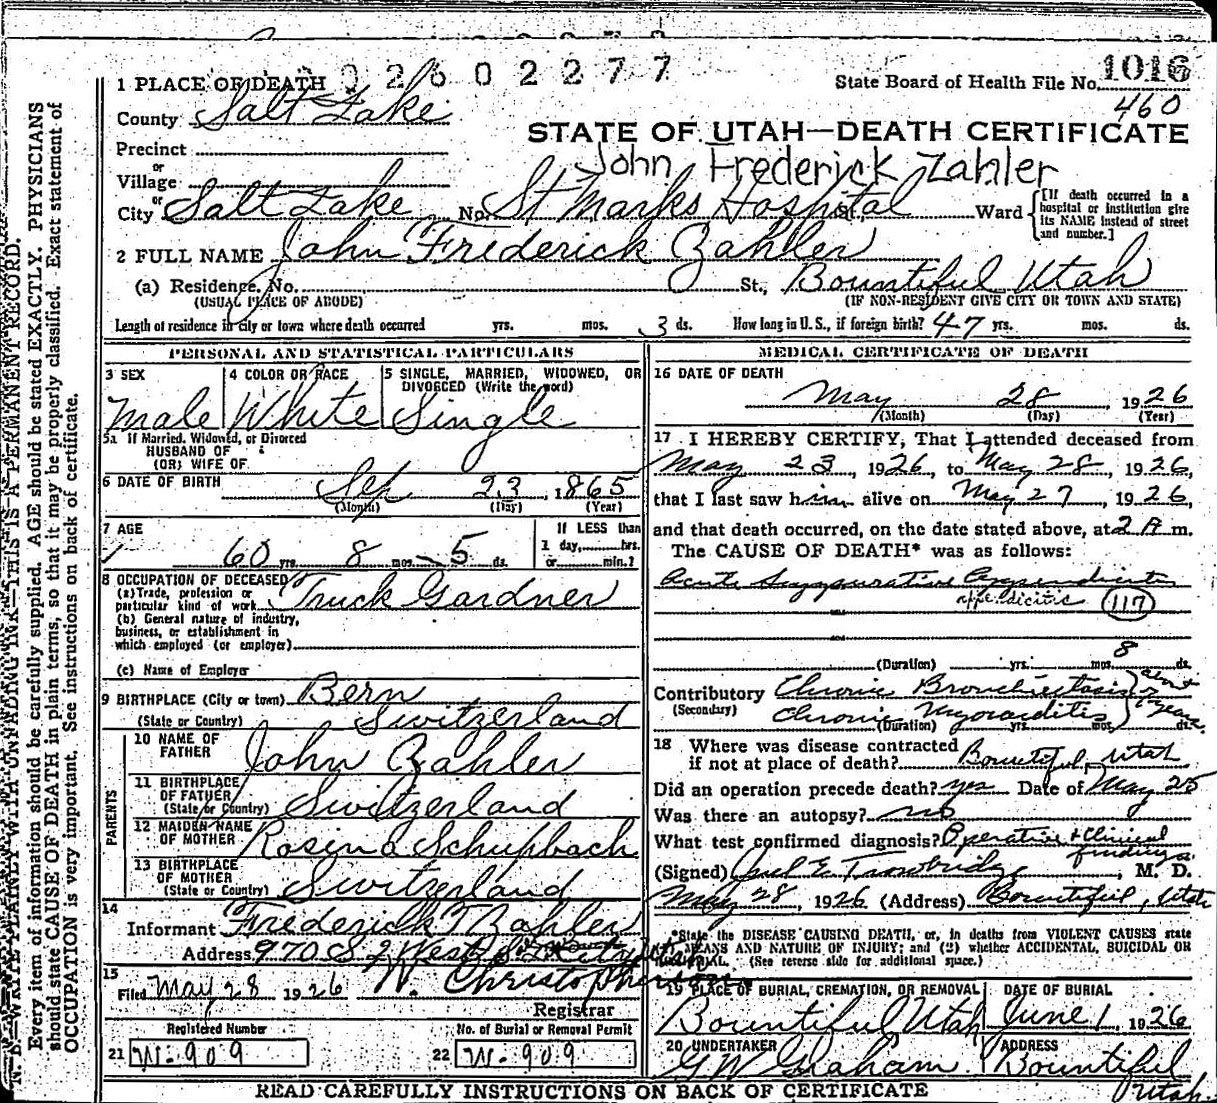 N. B.—WRITE PLAINLY WITH UNFADING INK—THIS IS A PERMANENT RECORD.
Every item of information should be carefully supplied. AGE should be stated EXACTLY. PHYSICIANS
should state CAUSE OF DEATH in plain terms, so that it may be properly classified. Exact statement of
OCCUPATION is very important. See instructions on back of certificate.
02602277
1016
1 PLACE OF DEATH
State Board of Health File No.
460
County Salt Lake
STATE OF UTAH—DEATH CERTIFICATE
Precinct
John Frederick Zahler
or
Village
or
City Salt Lake No. St Marks Hospital St. Ward
[If death occurred in a
hospital or institution give
its NAME instead of street
and number.]
2 FULL NAME John Frederick Zahler
(a) Residence. No. St., Bountiful Utah
(USUAL PLACE OF ABODE) (IF NON-RESIDENT GIVE CITY OR TOWN AND STATE)
Length of residence in city or town where death occurred yrs. mos. 3 ds. How long in U. S., if foreign birth? 47 yrs. mos. ds.
PERSONAL AND STATISTICAL PARTICULARS
3 SEX 4 COLOR OR RACE 5 SINGLE, MARRIED, WIDOWED, OR
DIVORCED (Write the word)
Male White Single
5a If Married, Widowed, or Divorced
HUSBAND OF
(OR) WIFE OF
6 DATE OF BIRTH Sep 23, 1865
(Month) (Day) (Year)
7 AGE If LESS than
60 yrs. 8 mos. 5 ds. 1 day, hrs.
or min.?
8 OCCUPATION OF DECEASED
(a) Trade, profession or
particular kind of work Truck Gardner
(b) General nature of industry,
business, or establishment in
which employed (or employer)
(c) Name of Employer
9 BIRTHPLACE (City or town) Bern
(State or Country) Switzerland
PARENTS
10 NAME OF
FATHER John Zahler
11 BIRTHPLACE
OF FATHER
(State or Country) Switzerland
12 MAIDEN NAME
OF MOTHER Rosina Schupbach
13 BIRTHPLACE
OF MOTHER
(State or Country) Switzerland
14
Informant Frederick Zahler
Address 970 S 2 West
15
Filed May 28 1926 W. Christopherson
Registrar
Registered Number No. of Burial or Removal Permit
21 W-909 22 W-909
MEDICAL CERTIFICATE OF DEATH
16 DATE OF DEATH
May 28 1926
(Month) (Day) (Year)
17 I HEREBY CERTIFY, That I attended deceased from
May 23, 1926, to May 28, 1926,
that I last saw him alive on May 27, 1926,
and that death occurred, on the date stated above, at 2 A m.
The CAUSE OF DEATH* was as follows:
Acute Suppurative Appendicitis
appendicitis 117
8
(Duration) yrs. mos. ds.
Contributory Chronic Bronchiectasis
(Secondary) Chronic Myocarditis
(Duration) yrs. mos. ds.
about
years
18 Where was disease contracted
if not at place of death? Bountiful, Utah
Did an operation precede death? yes Date of May 25
Was there an autopsy? no
What test confirmed diagnosis? Operative + Clinical
findings
(Signed) E Trowbridge, M. D.
May 28, 1926 (Address) Bountiful, Utah
*State the DISEASE CAUSING DEATH, or, in deaths from VIOLENT CAUSES state
MEANS AND NATURE OF INJURY; and (2) whether ACCIDENTAL, SUICIDAL OR
(See reverse side for additional space.)
19 PLACE OF BURIAL, CREMATION, OR REMOVAL DATE OF BURIAL
Bountiful Utah June 1 1926
20 UNDERTAKER ADDRESS
G W Graham Bountiful
Utah
READ CAREFULLY INSTRUCTIONS ON BACK OF CERTIFICATE